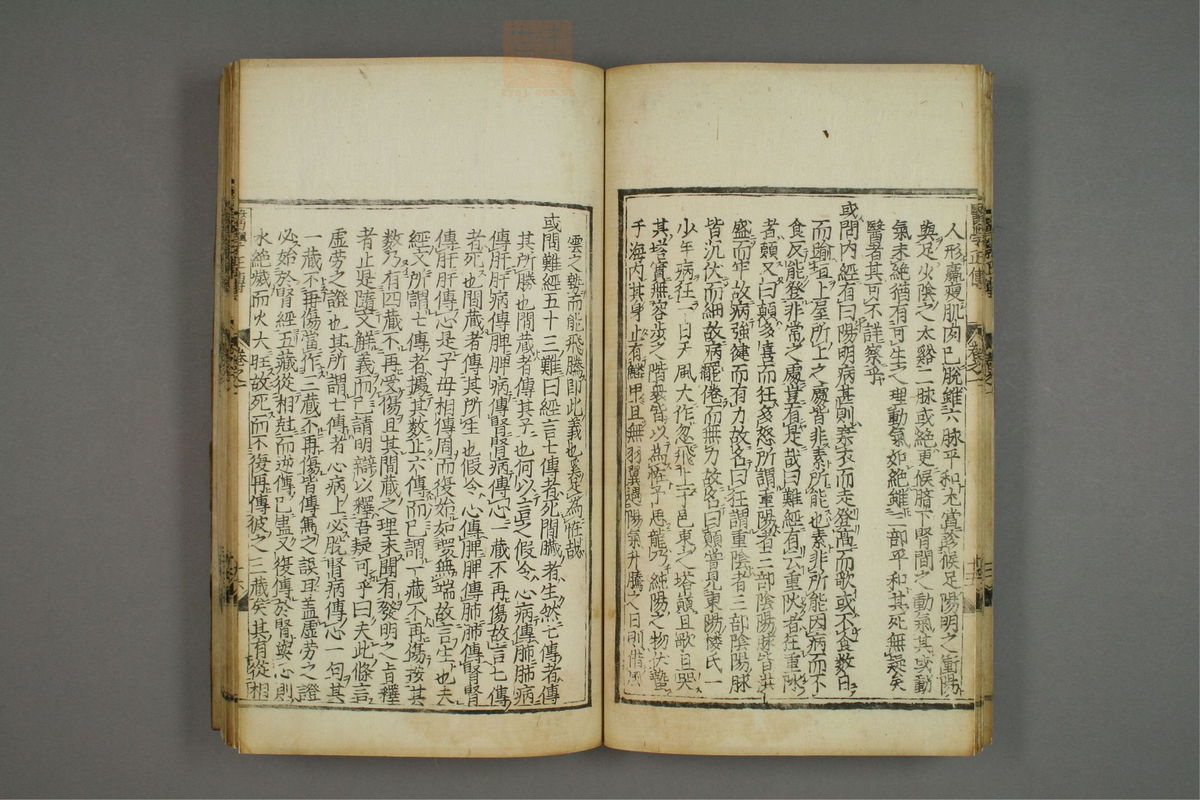 人形羸瘦肌肉已脫雖六脉平和尤當診候足陽明之衝陽
與足少陰之太谿二脉或絕更候臍下腎間之動氣其或動
氣未絕猶有可生之理動氣如絕雖三部平和其死無疑矣
醫者其可不詳察乎
或問內經有曰陽明病甚則棄衣而走登高而歌或不食數日
而踰垣上屋所上之處皆非素所能也素非所能因病而不
食反能登非常之處豈有是哉曰難經有云重陽者狂重陰
者顛又曰顛多喜而狂多怒所謂重陽者三部陰陽脉皆洪
盛而牢故病強健而有力故名曰狂謂重陰者三部陰陽脉
皆沉伏而細故病罷倦而無力故名曰顛嘗見東陽樓氏一
少年病狂一日天風大作忽飛上于邑東之塔顛且歌且哭
其塔實無容步之階衆皆以為怪予思龍乃純陽之物伏蟄
于海內其身止有鱗甲且無羽翼遇陽氣升騰之日則借風
雲之勢而能飛騰即此義也奚足為怪哉
或問難經五十三難曰經言七傳者死間臟者生然七傳者傳
其所勝也間藏者傳其子也何以言之假令心病傳肺肺病
傳肝肝病傳脾脾病傳腎腎病傳心一藏不再傷故言七傳
者死也間藏者傳其所生也假令心傳脾脾傳肺肺傳腎腎
傳肝肝傳心是子母相傳周而復始如環無端故言生也夫
經文所謂七傳者據其數止六傳而已謂一藏不再傷按其
數乃有四藏不再受傷且其間藏之理未聞有發明之旨釋
者止是隨文解義而已請明辯以釋吾疑可乎曰夫此條言
虛勞之證也其所謂七傳者心病上必脫腎病傳心一句其
一藏不再傷當作三藏不再傷皆傳寫之誤耳盖虛勞之證
必始於腎經五藏從相尅而逆傳已盡又復傳於腎與心則
水絕滅而火大旺故死而不復再傳彼之三藏矣其有從相
卷之一
十六